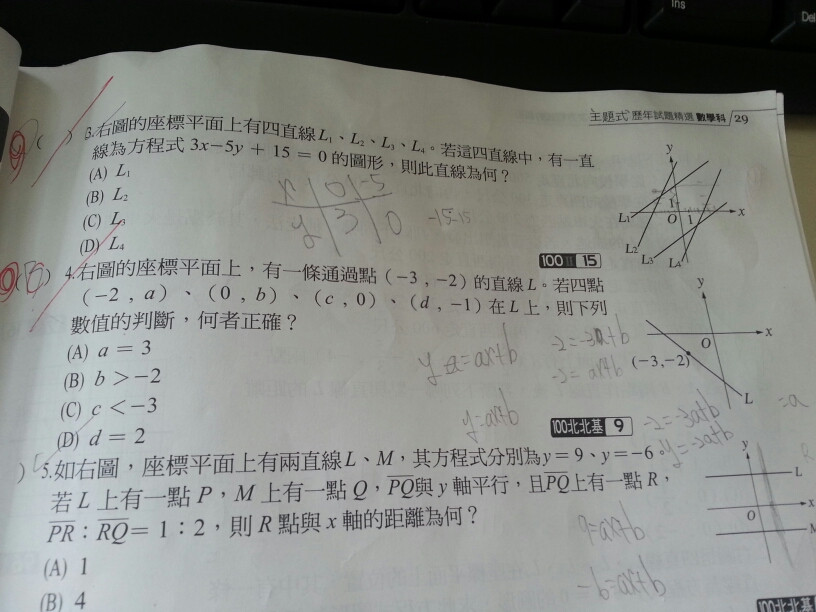 Ins
Del
主題式 歷年試題精選 數學科 / 29
( ) 3.右圖的座標平面上有四直線L₁、L₂、L₃、L₄。若這四直線中,有一直
線為方程式 3x-5y + 15 = 0 的圖形,則此直線為何?
(A) L₁
(B) L₂
(C) L₃
(D) L₄
x 0 -5
y 3 0
-15-15
y
x
1
O 1
L₁
L₂
L₃
L₄
100 II 15
(B) 4.右圖的座標平面上,有一條通過點(-3,-2)的直線L。若四點
(-2,a)、(0,b)、(c,0)、(d,-1)在L上,則下列
數值的判斷,何者正確?
(A) a = 3
(B) b > -2
(C) c < -3
(D) d = 2
y
x
O
(-3,-2)
L
y=ax+b
-2=ax+b
=a
100北北基 9
-2=-3a+b
y=-2a+b
) 5.如右圖,座標平面上有兩直線L、M,其方程式分別為y = 9、y = -6。
若 L 上有一點 P,M 上有一點 Q,PQ與 y 軸平行,且PQ上有一點 R,
PR:RQ= 1:2,則 R 點與 x 軸的距離為何?
(A) 1
(B) 4
y
L
x
O
M
9=ax+b
-6=ax+b
100北北基